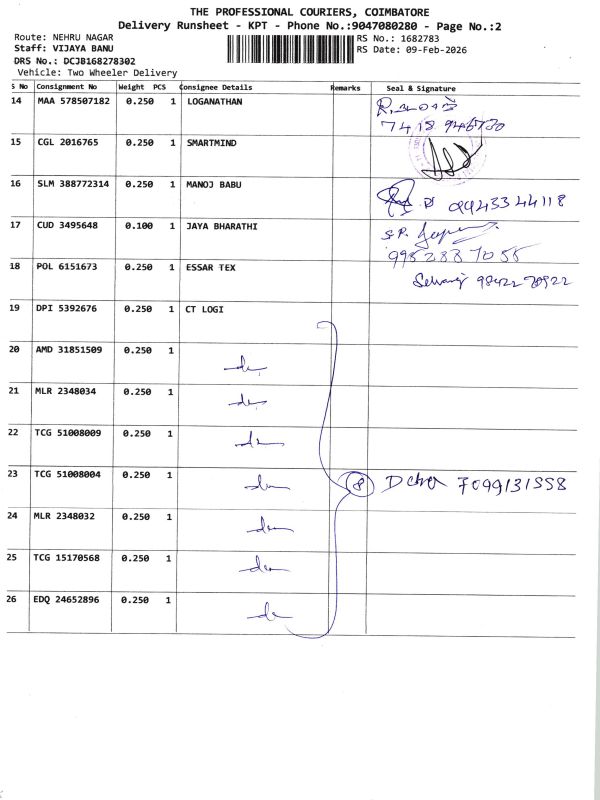 THE PROFESSIONAL COURIERS, COIMBATORE
Delivery Runsheet - KPT - Phone No.:9047080280 - Page No.:2
Route: NEHRU NAGAR
RS No.: 1682783
Staff: VIJAYA BANU
RS Date: 09-Feb-2026
DRS No.: DCJB168278302
Vehicle: Two Wheeler Delivery
S No Consignment No Weight PCS Consignee Details Remarks Seal & Signature
14 MAA 578507182 0.250 1 LOGANATHAN
15 CGL 2016765 0.250 1 SMARTMIND
16 SLM 388772314 0.250 1 MANOJ BABU 9943344118
17 CUD 3495648 0.100 1 JAYA BHARATHI S.P.
18 POL 6151673 0.250 1 ESSAR TEX
19 DPI 5392676 0.250 1 CT LOGI
20 AMD 31851509 0.250 1
21 MLR 2348034 0.250 1
22 TCG 51008009 0.250 1
23 TCG 51008004 0.250 1 8 7099131558
24 MLR 2348032 0.250 1
25 TCG 15170568 0.250 1
26 EDQ 24652896 0.250 1